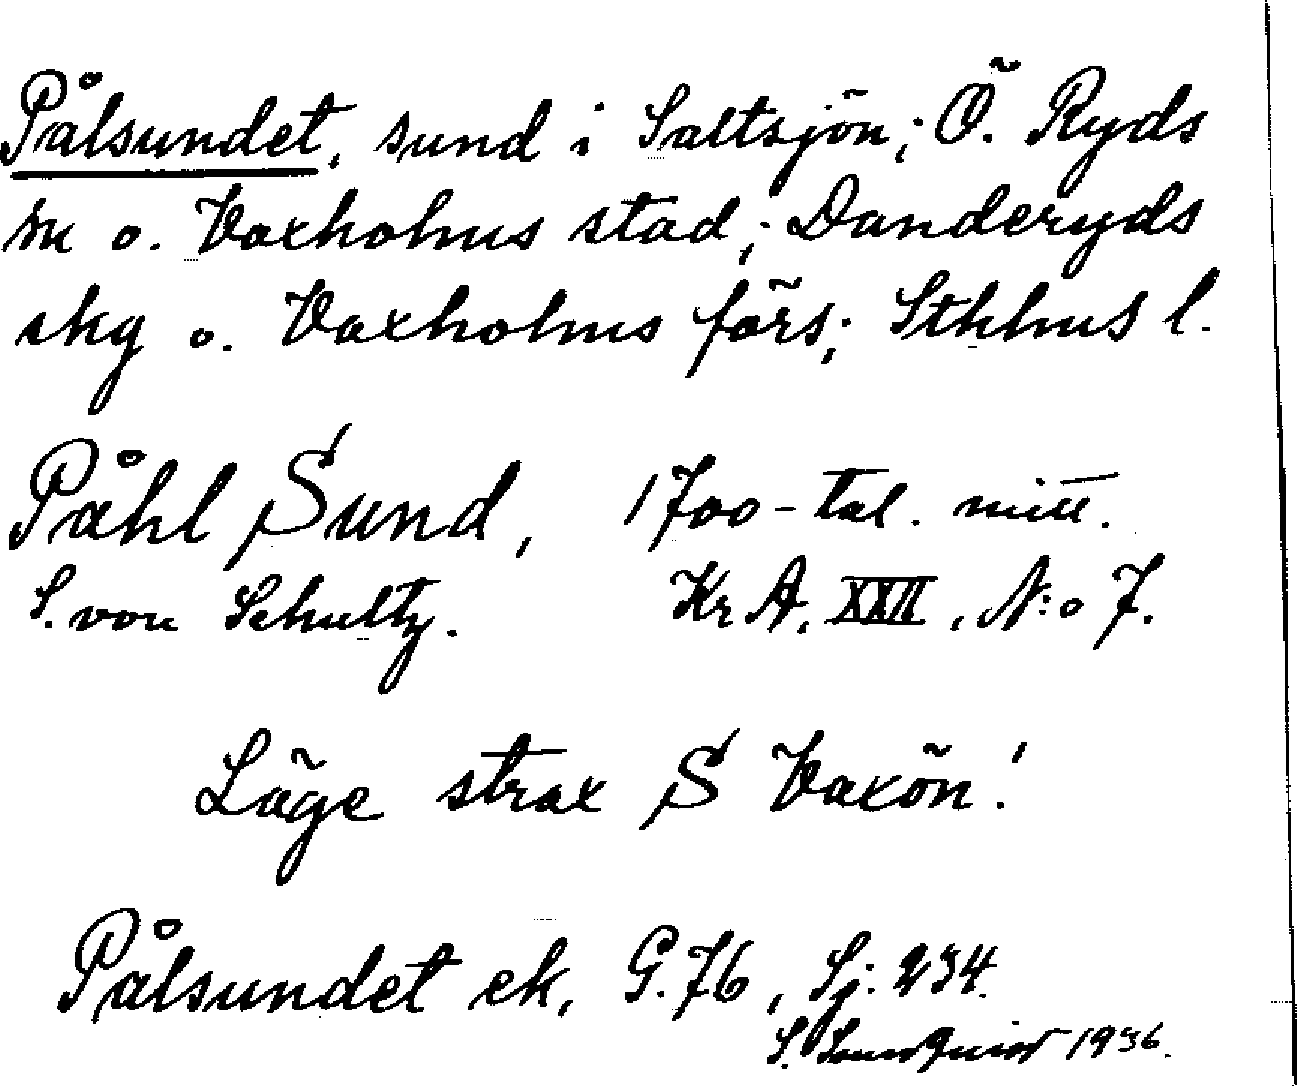 Pålsundet, sund i Saltsjön; Ö. Ryds
sn o. Vaxholms stad; Danderyds
skg o. Vaxholms förs; Sthlms l.
Påhl Sund, 1700-tal. mitt.
S. von Schultz. Kr A, XXII, N:o 7.
Läge strax S Vaxön!
Pålsundet ek, G. 76, Sj: 234.
S. 1936.